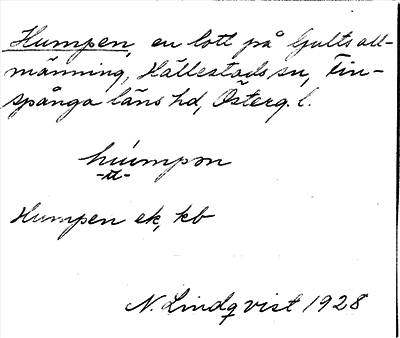 Humpen, en lott på Gults all-
männing, Hällestads sn, Fin-
spånga läns hd, Österg. l.
húmpən
Humpen ek, kb
N. Lindqvist 1928